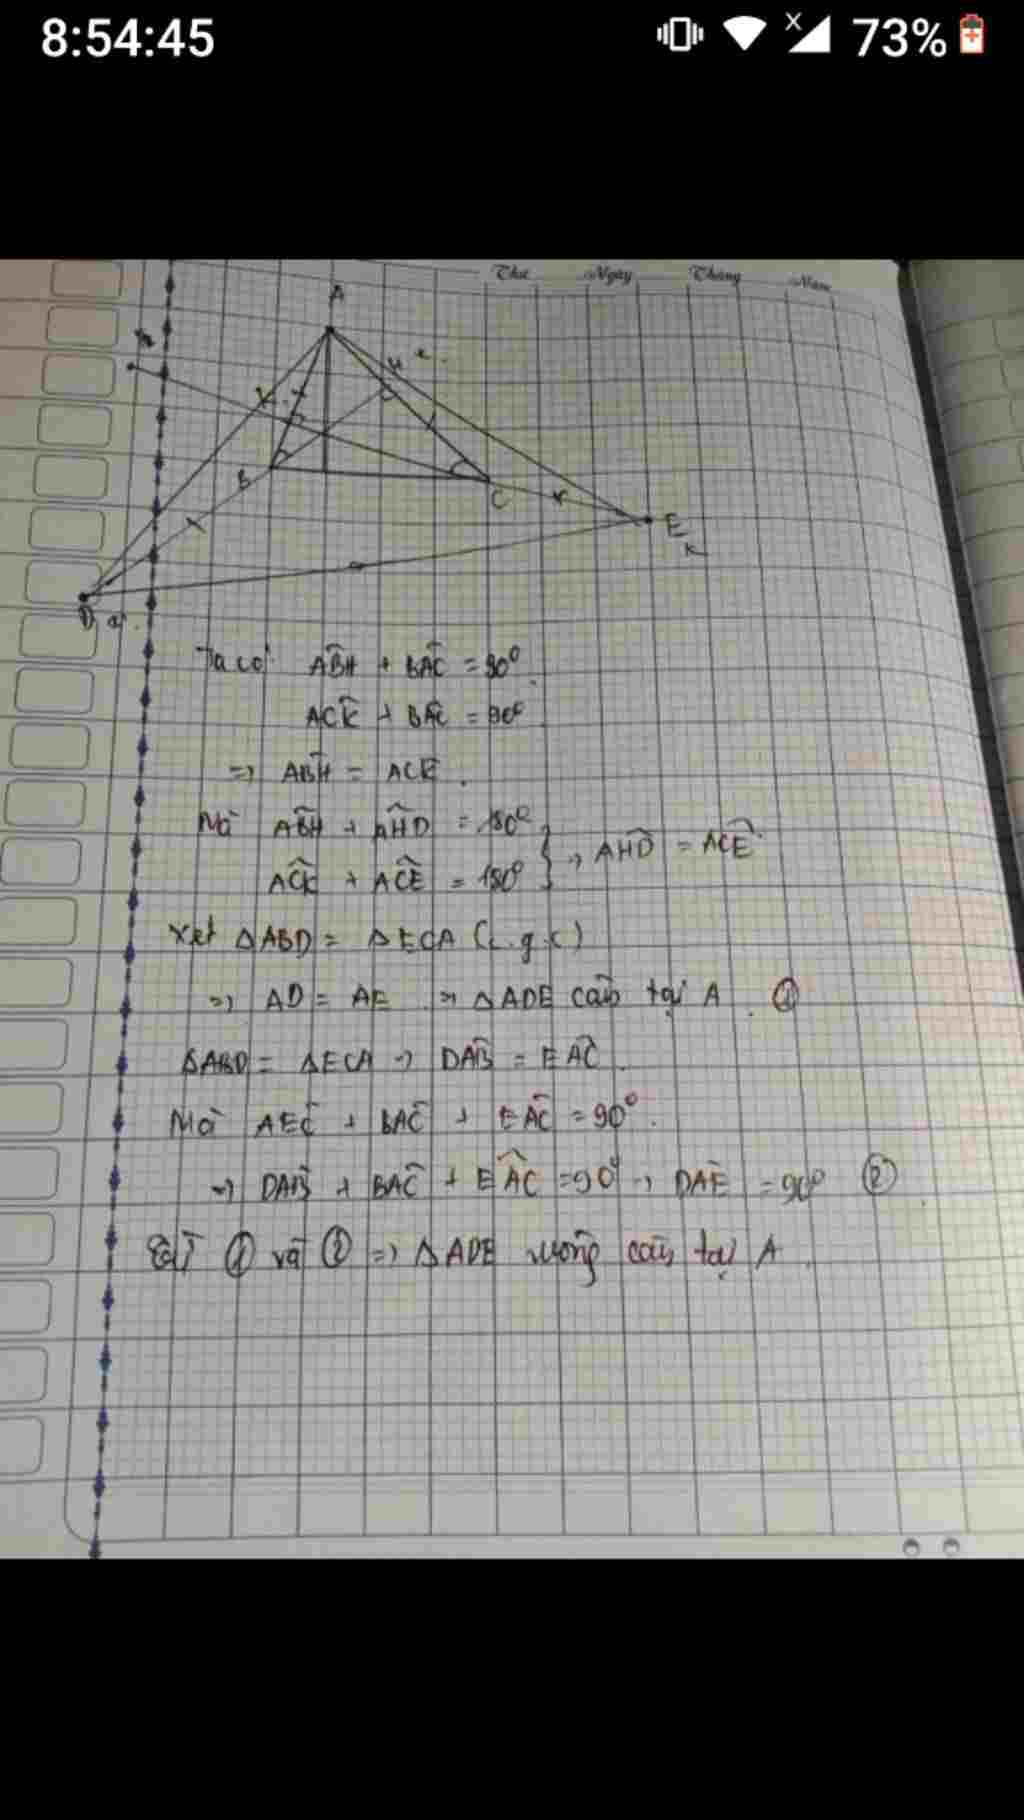 8:54:45 73%
Thứ Ngày Tháng Năm
A
H
K
B
C
E
k
D
Ta có ABH + BAC = 90°
ACK + BAC = 90°
=> ABH = ACK
Mà ABH + AHD = 180°
ACK + ACE = 180° } => AHD = ACE
Xét ΔABD = ΔECA (c.g.c)
=> AD = AE => ΔADE cân tại A ①
ΔABD = ΔECA => DAB = EAC
Mà AEC + BAC + EAC = 90°.
=> DAB + BAC + EAC = 90° => DAE = 90° ②
① và ② => ΔADE vuông cân tại A.